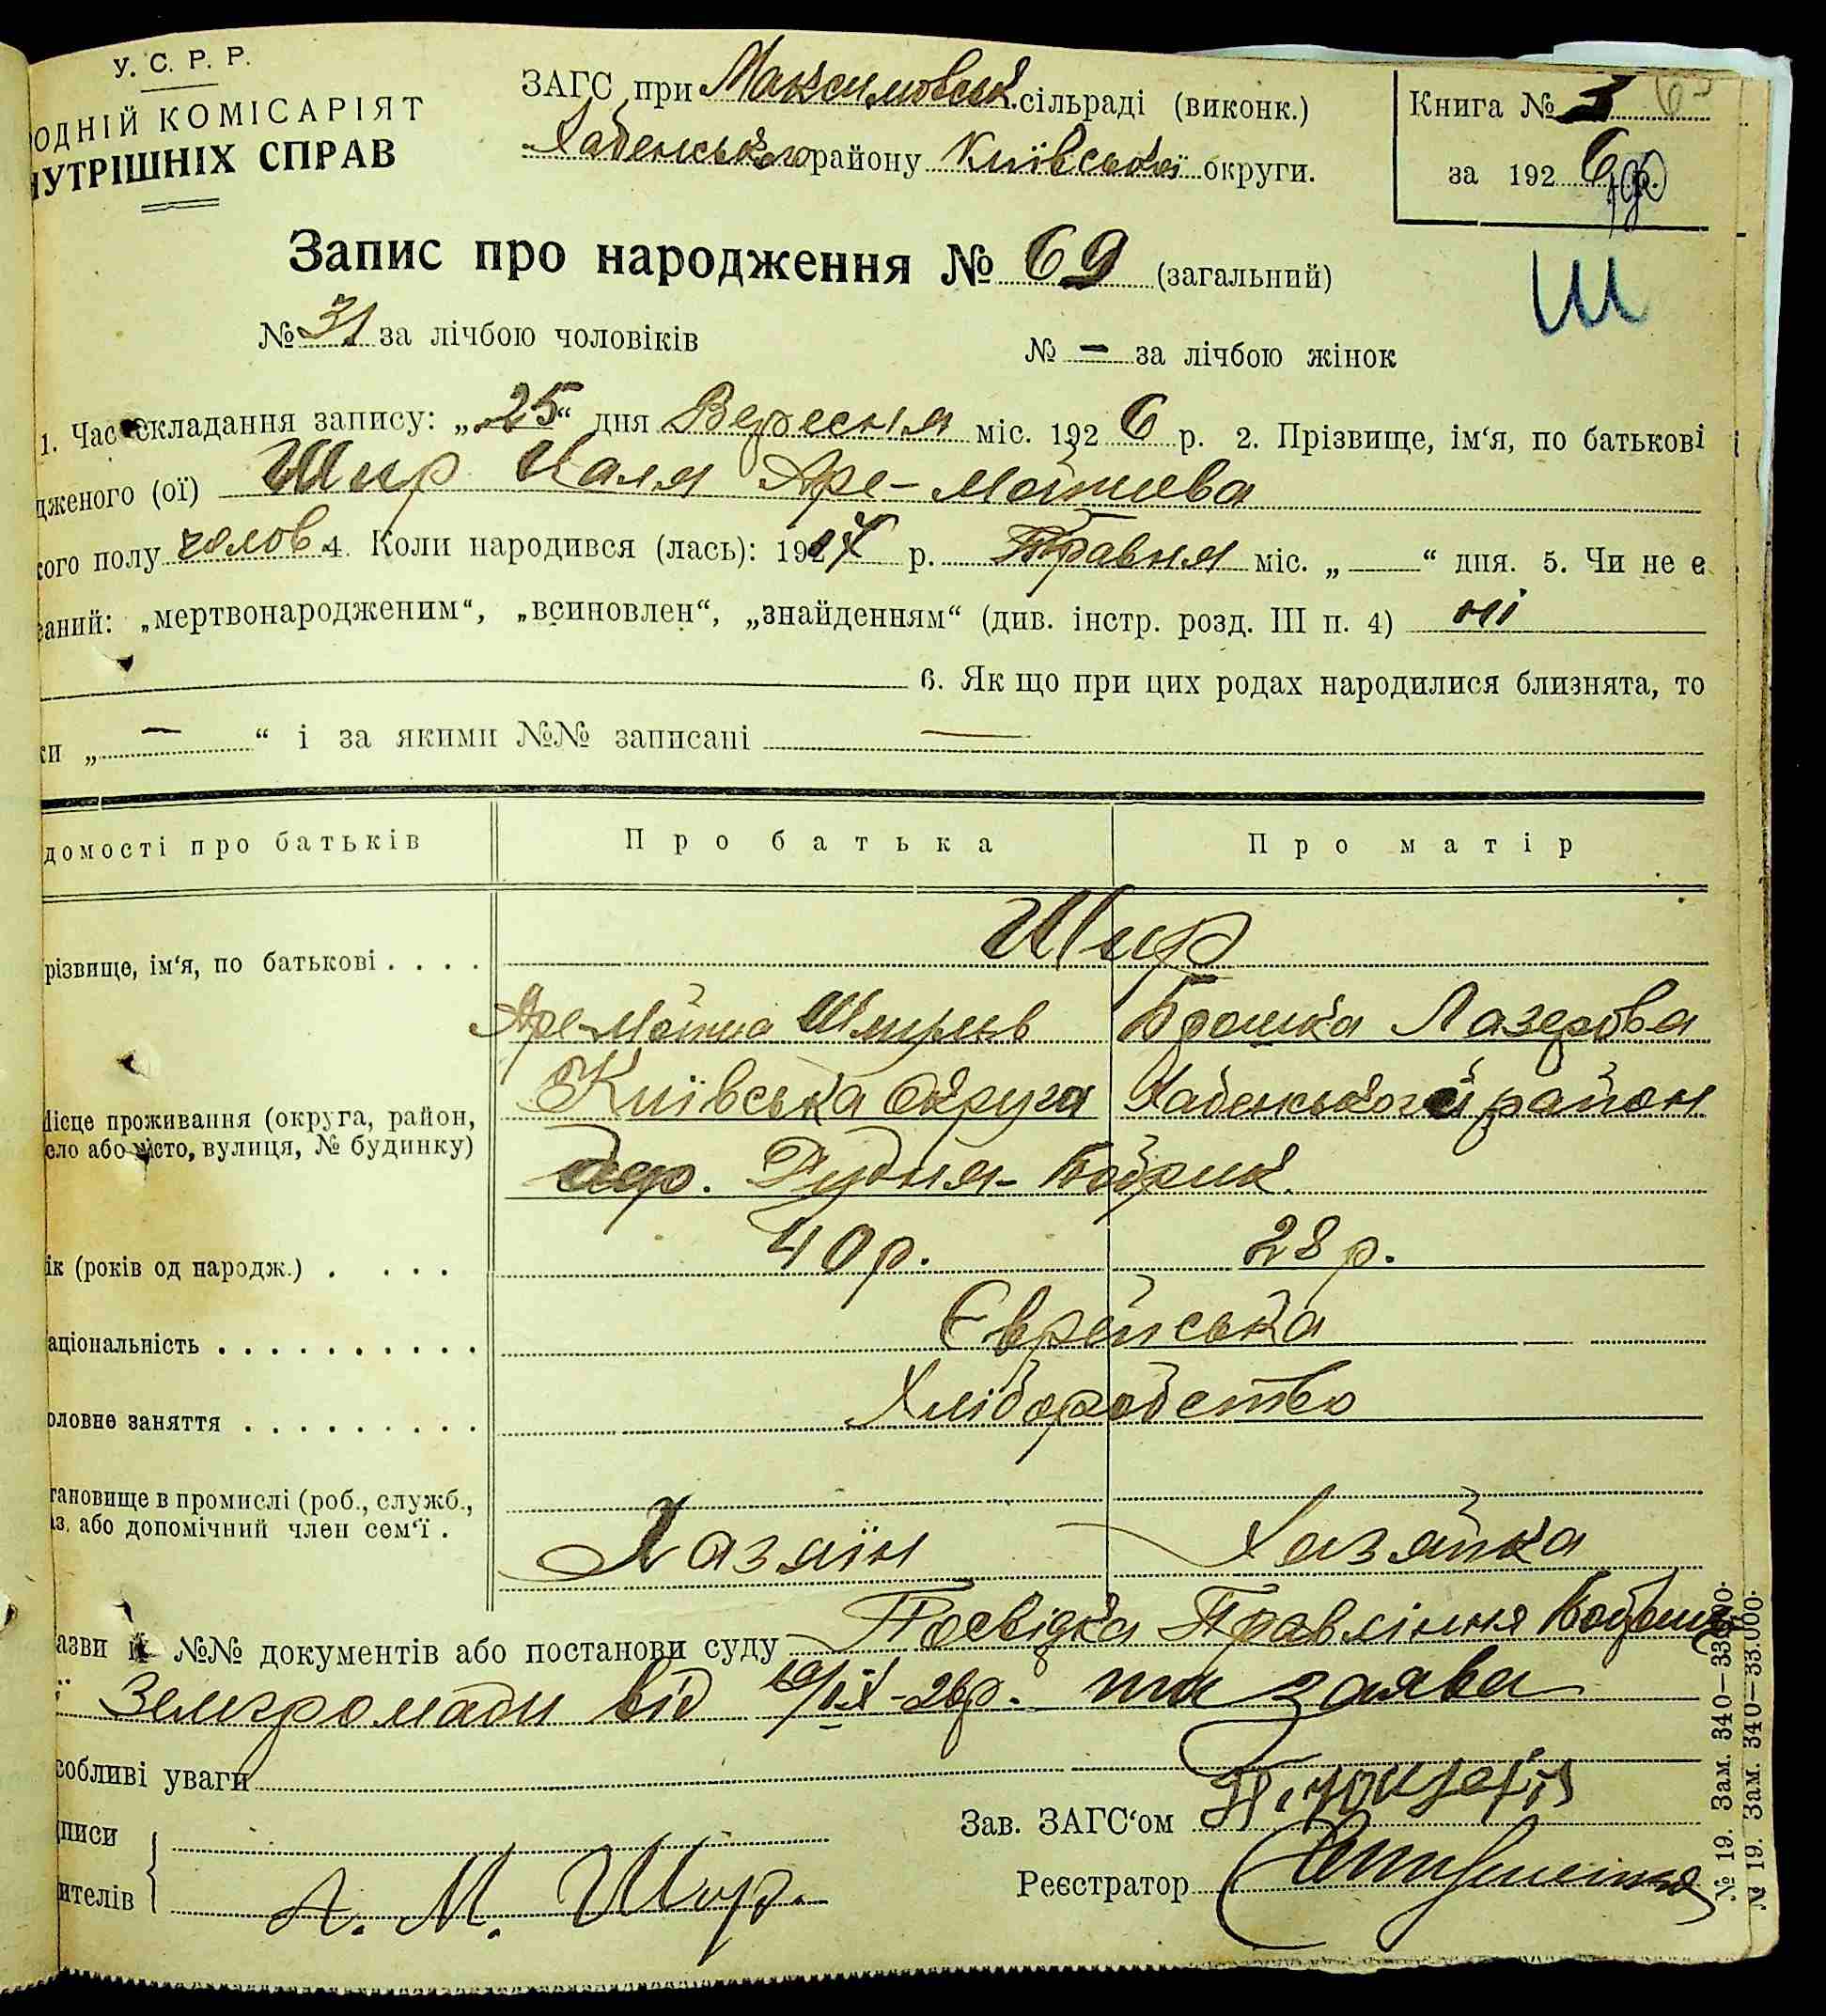 У. С. Р. Р.
ОДНІЙ КОМІСАРІЯТ
НУТРІШНІХ СПРАВ
ЗАГС при Максимовськ. сільраді (виконк.)
Хабенського району Київської округи.
Книга № 3
за 1926 р.
Запис про народження № 69 (загальний)
Ш
№ 31 за лічбою чоловіків
№ — за лічбою жінок
1. Час складання запису: „25“ дня Вересня міс. 1926 р. 2. Прізвище, ім‘я, по батькові
дженого (ої) Шир Маля Аре-Мошкова
кого полу челов 4. Коли народився (лась): 19 р. Травня міс. „—“ дня. 5. Чи не є
заний: „мертвонародженим“, „всиновлен“, „знайденням“ (див. інстр. розд. III п. 4) ні
6. Як що при цих родах народилися близнята, то
ки „—“ і за якими №№ записані —
домості про батьків
Про батька
Про матір
різвище, ім‘я, по батькові . . . .
Шир
Аре-Мошко Шмулев
Брошка Лазерова
Місце проживання (округа, район,
ело або місто, вулиця, № будинку)
Київська Округа Хабенського район
дер. Рудня-Бобрик.
ік (років од народж.) . . . .
40 р.
28 р.
аціональність . . . . . . . . . . .
Єврейська
оловне заняття . . . . . . . . .
Хліборобство
тановище в промислі (роб., служб.,
аз. або допомічний член сем‘ї .
Хазяїн
Хазяйка
азви й №№ документів або постанови суду Посвідка Правління
їЗемгромади від /IX-26р. та заява
собливі уваги
Зав. ЗАГС‘ом
писи
ителів
А. М. Шир.
Реєстратор
№ 19. Зам. 340—33.000.
№ 19. Зам. 340—33.000.